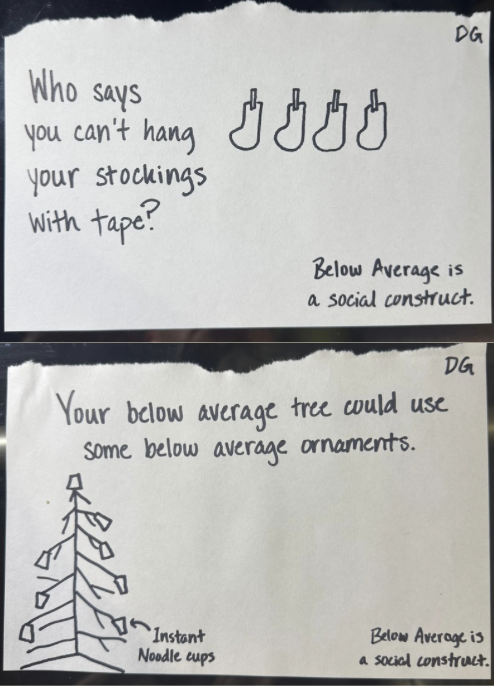 DG
Who says
you can't hang
your stockings
with tape?
Below Average is
a social construct.
DG
Your below average tree could use
some below average ornaments.
Instant
Noodle cups
Below Average is
a social construct.